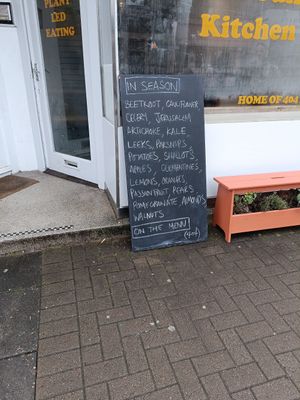 PLANT
LED
EATING
Kitchen
HOME OF 404
IN SEASON
BEETROOT, CAULIFLOWER
CELERY, JERUSALEM
ARTICHOKE, KALE
LEEKS, PARSNIPS,
POTATOES, SHALLOTS
APPLES, CLEMENTINES,
LEMONS, ORANGES,
PASSIONFRUIT PEARS
POMEGRANATE ALMONDS
WALNUTS
ON THE MENU
(404)